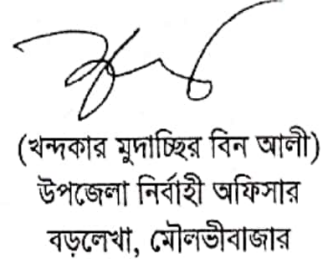 (খন্দকার মুদাচ্ছির বিন আলী)
উপজেলা নির্বাহী অফিসার
বড়লেখা, মৌলভীবাজার